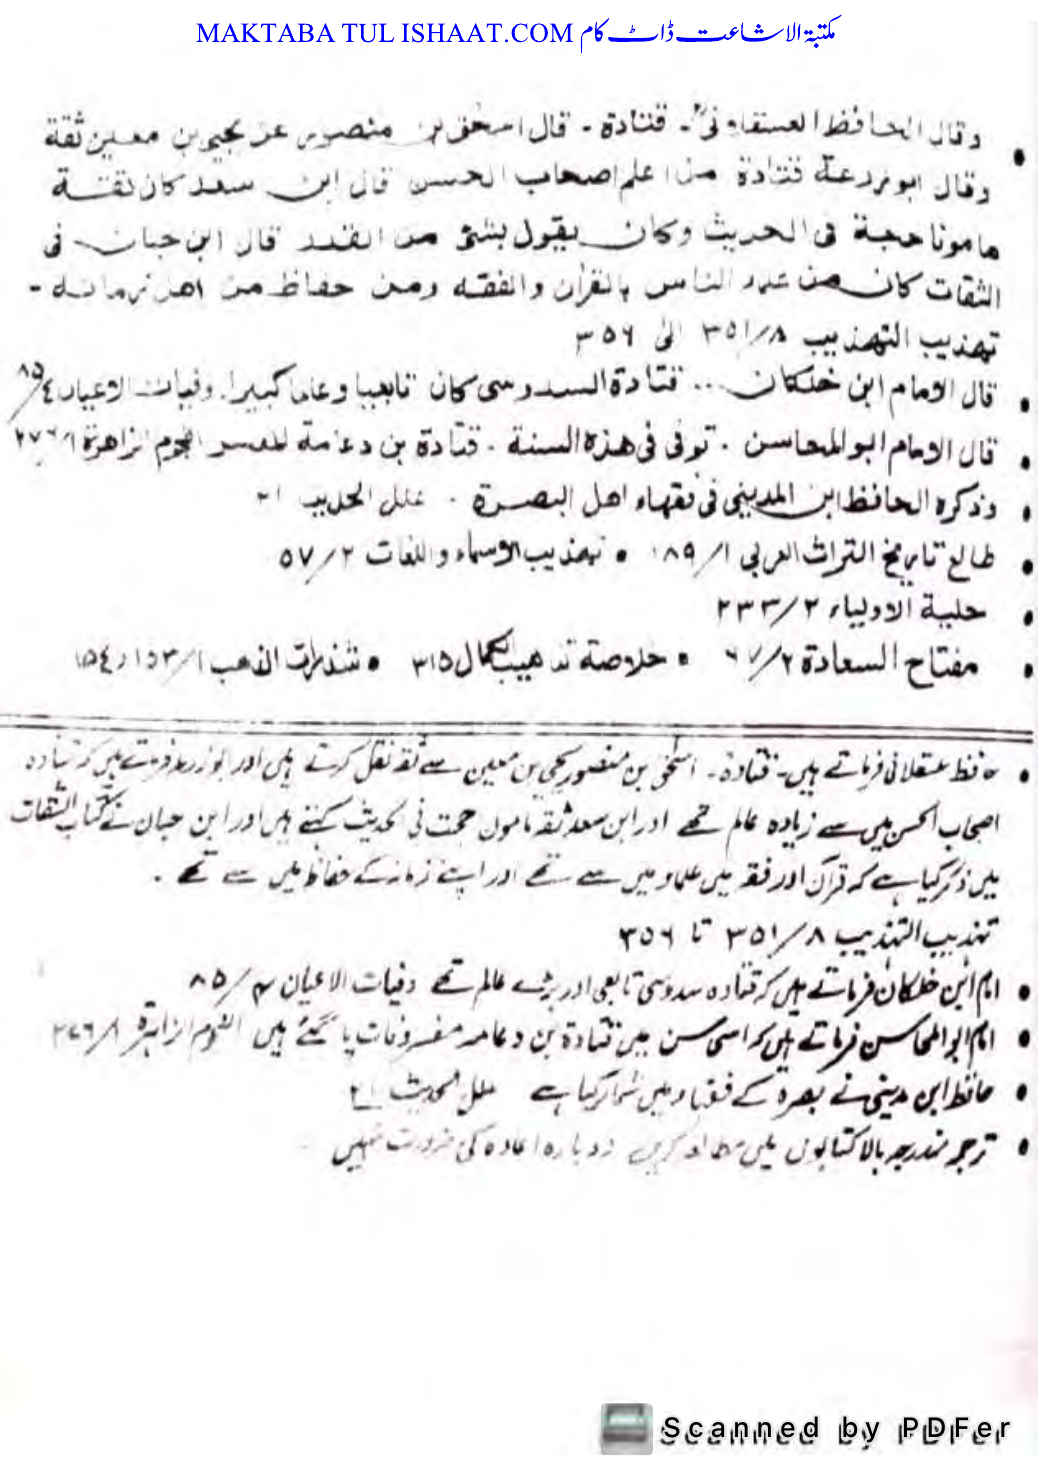 MAKTABA TUL ISHAAT.COM مکتبۃ الاشاعت ڈاٹ کام
• وقال الحافظ العسقلانی - قتادة - قال اسحق بن منصور عن یحیی بن معین ثقة
وقال ابو زرعة قتادة من اعلم اصحاب الحسن قال ابن سعد کان ثقة
مامونا حجة فی الحدیث وکان یقول بشئ من القدر قال ابن حبان فی
الثقات کان من علماء الناس بالقرآن والفقه ومن حفاظ من اهل زمانه -
تهذیب التهذیب ٣٥١/٨ الی ٣٥٦
• قال الامام ابن خلکان .. قتادة السدوسی کان تابعیا وعالما کبیرا. وفیات الاعیان ٨٥/٤
• قال الامام ابو المحاسن . توفی فی هذه السنة . قتادة بن دعامة المفسر النجوم الزاهرة ٢٧٦/١
• وذکره الحافظ ابن المدینی فی فقهاء اهل البصرة . علل الحدیث ٢١
• طالع تاریخ التراث العربی ١٨٩/١ • تهذیب الاسماء واللغات ٥٧/٢
• حلیة الاولیاء ٢٣٣/٢
• مفتاح السعادة ٦٧/٢ • خلاصة تذهیب الکمال ٣١٥ • شذرات الذهب ١٥٣/١ و ١٥٤
• حافظ عسقلانی فرماتے ہیں - قتادة - اسحٰق بن منصور یحیی بن معین سے ثقہ نقل کرتے ہیں اور ابو زرعہ فرماتے ہیں کہ قتادہ
اصحاب الحسن میں سے زیادہ عالم تھے اور ابن سعد ثقہ مامون حجت فی الحدیث کہتے ہیں اور ابن حبان نے کتاب الثقات
میں ذکر کیا ہے کہ قرآن اور فقہ میں علماء میں سے تھے اور اپنے زمانہ کے حفاظ میں سے تھے .
تہذیب التہذیب ٣٥١/٨ تا ٣٥٦
• امام ابن خلکان فرماتے ہیں کہ قتادہ سدوسی تابعی اور بڑے عالم تھے وفیات الاعیان ٨٥/٤
• امام ابو المحاسن فرماتے ہیں کہ اسی سن میں قتادة بن دعامہ مفسر وفات پا گئے ہیں النجوم الزاہرة ٢٧٦/١
• حافظ ابن مدینی نے بصرہ کے فقہاء میں شمار کیا ہے علل الحدیث ٢١
• ترجمہ مندرجہ بالا کتابوں میں مطالعہ کریں دوبارہ اعادہ کی ضرورت نہیں
Scanned by PDFer